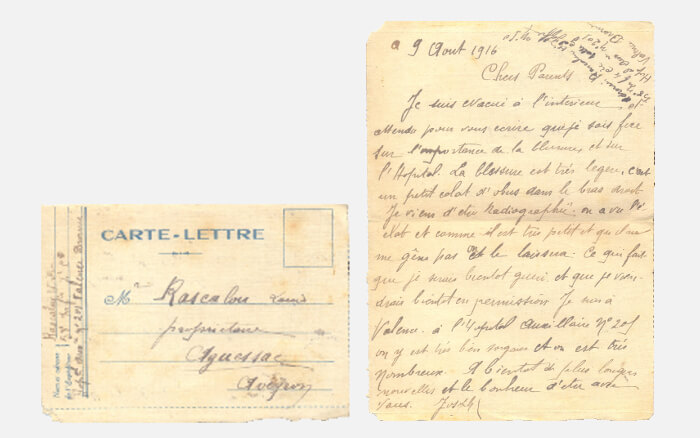 CARTE-LETTRE
Mr Rascalou Louis
propriétaire
Aguessac
Aveyron
9 Aout 1916
Chers Parents
Je suis evacué à l'interieur
attendu pour vous ecrire que je sois fixe
sur l'importance de la blessure et sur
l'Hopital. La blessure est très legere, c'est
un petit eclat d'obus dans le bras droit
Je viens d'etre Radiographié. on a vu l'é
clat et comme il est très petit et qu'il ne
me gêne pas on le laissera. Ce qui fait
que je serais bientot gueri et que je vien-
drais bientot en permission. Je suis à
Valence. à l'Hopital Auxillaire N° 201
on y est très bien soigné et on est très
nombreux. A bientot de plus longues
nouvelles et le bonheur d'etre avec
vous. Joseph